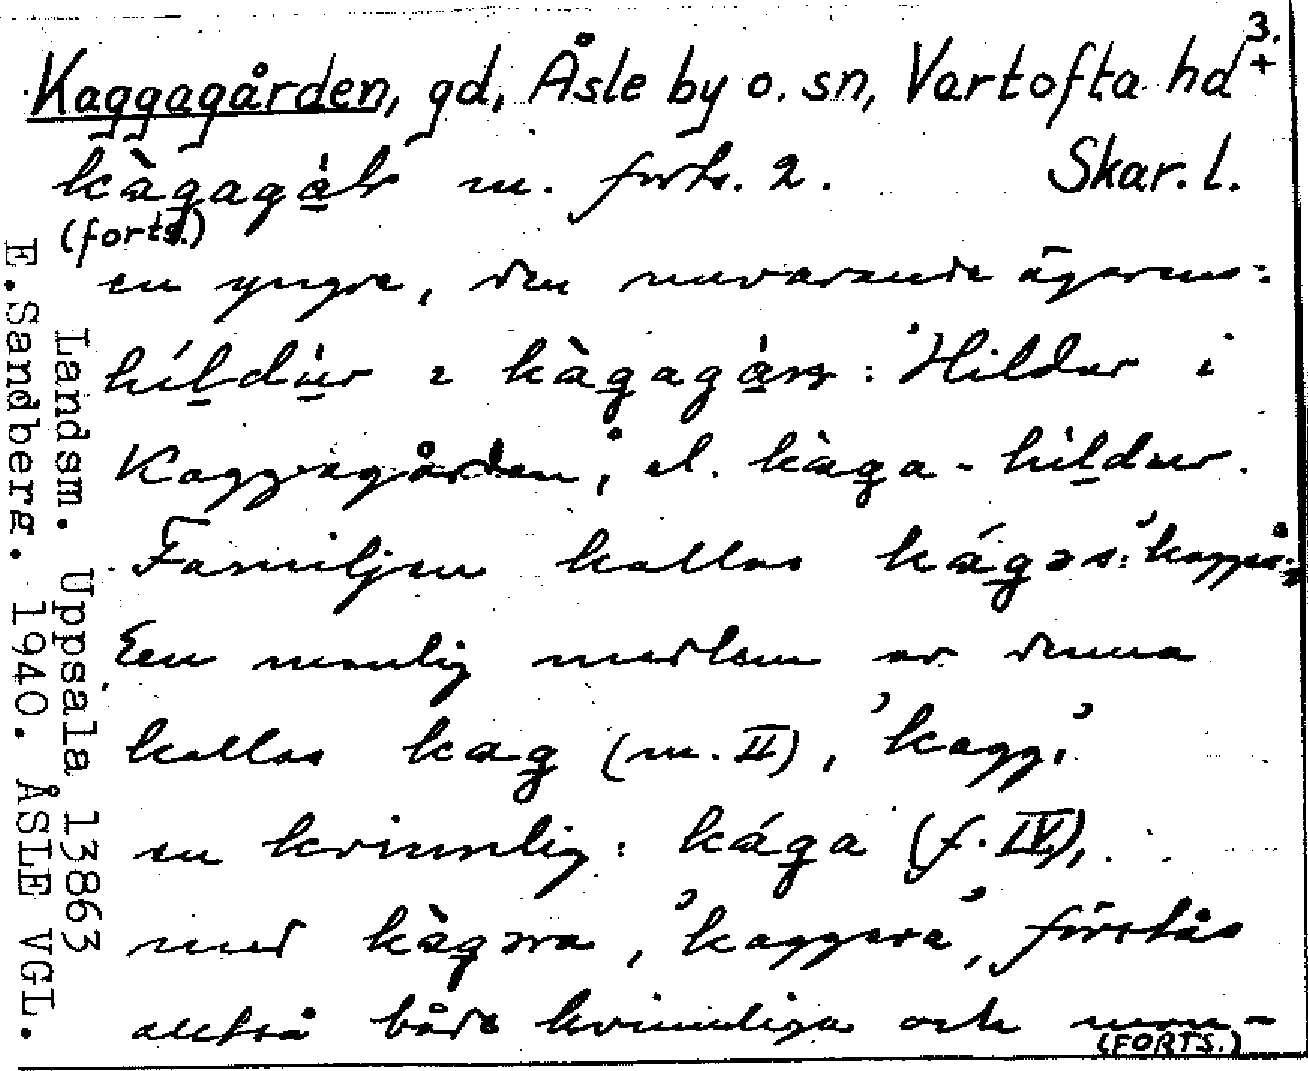 3.
+
Kaggagården, gd, Åsle by o. sn, Vartofta hd
kàgagá m. forts. 2. Skar. l.
(forts.)
en yngre, den nuvarande ägarens:
híldùr i kàgagáṛṇ: 'Hildur i
Kaggagården', el. kàga-híldur.
Familjen kallas kágəs: 'kaggas'.
Een manlig medlem av denna
kallas kag (m. II), 'kagg,'
en kvinnlig: kága (f. IV),
med kàgəra, 'kaggara', förstås
alltså både kvinnliga och man-
(FORTS.)
Landsm. Uppsala 13863
E.Sandberg. 1940. ÅSLE VGL.